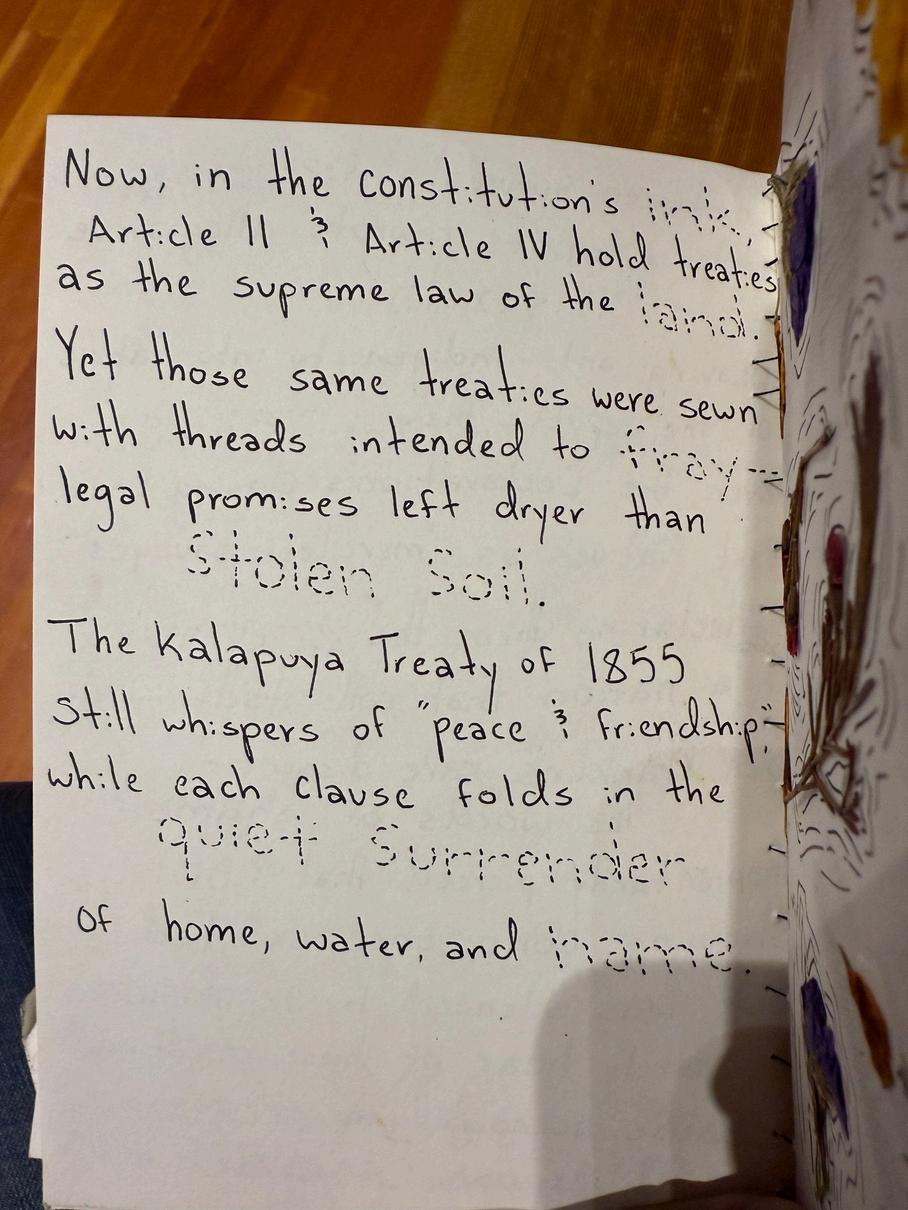 Now, in the constitution's ink,
Article II & Article IV hold treaties
as the supreme law of the land.
Yet those same treaties were sewn
with threads intended to fray—
legal promises left dryer than
Stolen Soil.
The Kalapuya Treaty of 1855
Still whispers of "peace & friendship,"
while each clause folds in the
quiet Surrender
of home, water, and name.